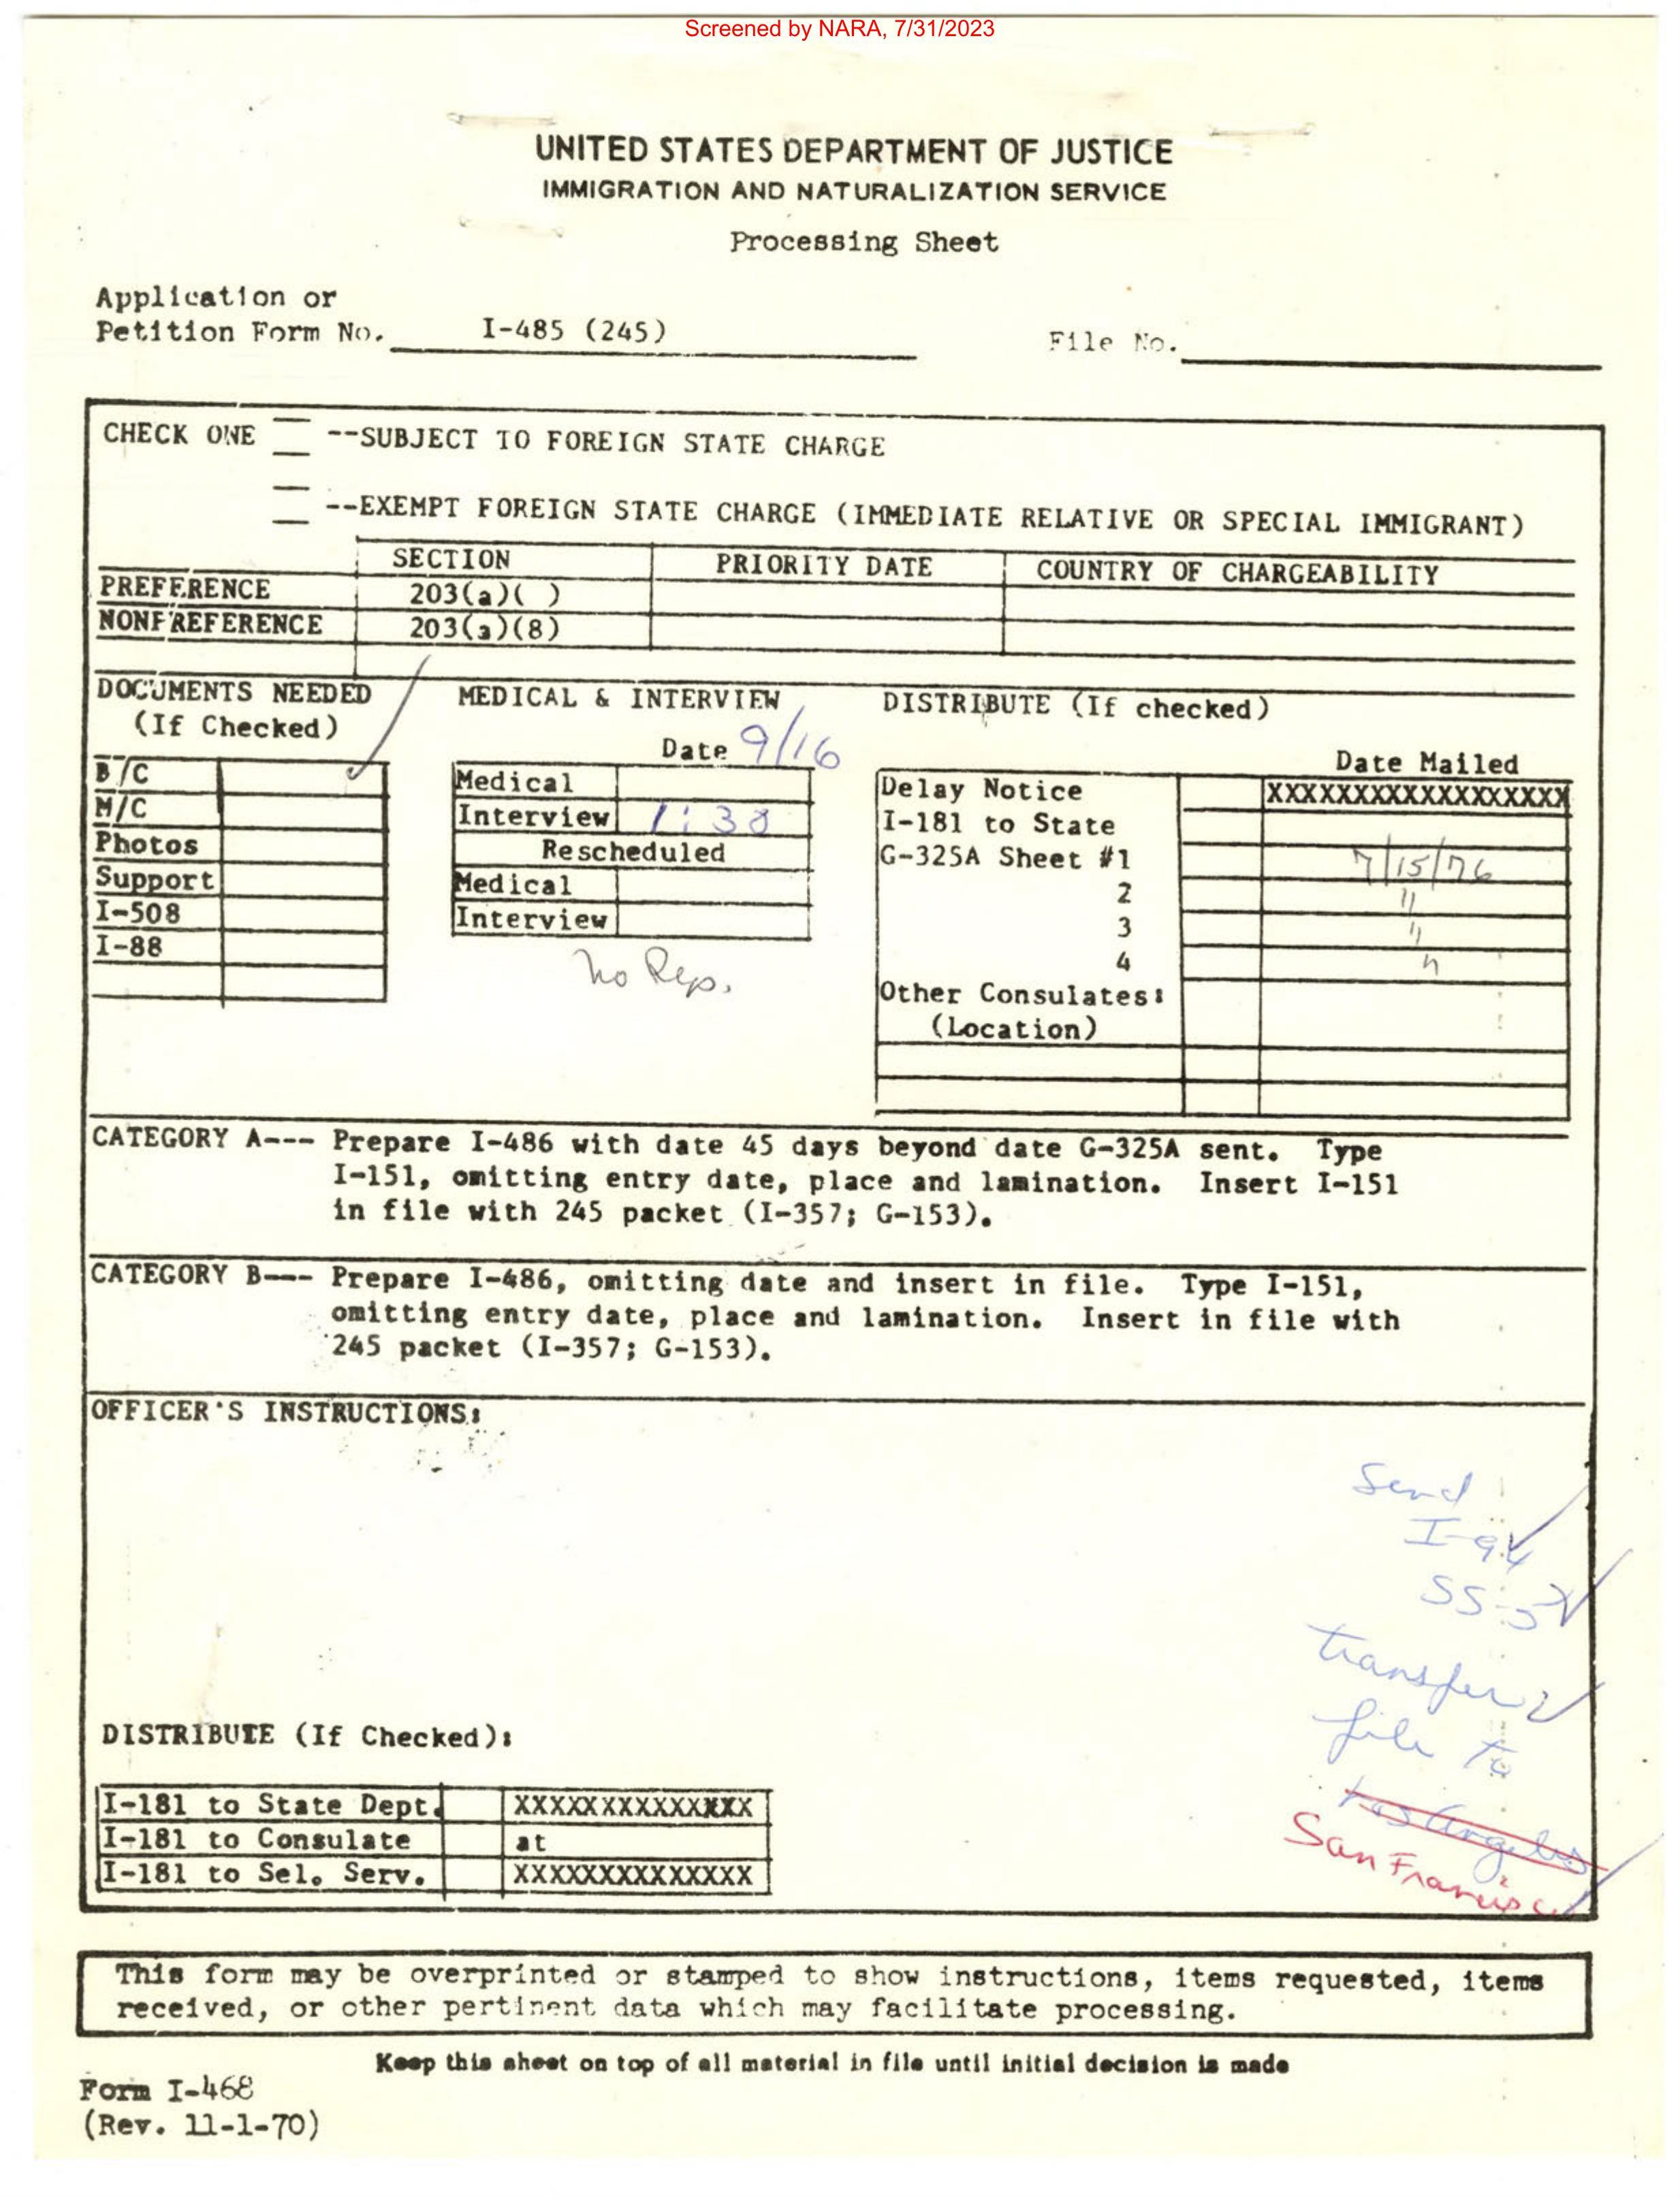 Screened by NARA, 7/31/2023
UNITED STATES DEPARTMENT OF JUSTICE
IMMIGRATION AND NATURALIZATION SERVICE
Processing Sheet
Application or
Petition Form No. I-485 (245)
File No.
CHECK ONE --SUBJECT TO FOREIGN STATE CHARGE
--EXEMPT FOREIGN STATE CHARGE (IMMEDIATE RELATIVE OR SPECIAL IMMIGRANT)
SECTION PRIORITY DATE COUNTRY OF CHARGEABILITY
PREFERENCE 203(a)( )
NONPREFERENCE 203(a)(8)
DOCUMENTS NEEDED
(If Checked)
B/C
M/C
Photos
Support
I-508
I-88
MEDICAL & INTERVIEW
Date 9/16
Medical
Interview 1:30
Rescheduled
Medical
Interview
No Rep.
DISTRIBUTE (If checked)
Date Mailed
Delay Notice XXXXXXXXXXXXXXXXXX
I-181 to State
G-325A Sheet #1 7/15/76
2 "
3 "
4 "
Other Consulates:
(Location)
CATEGORY A--- Prepare I-486 with date 45 days beyond date G-325A sent. Type
I-151, omitting entry date, place and lamination. Insert I-151
in file with 245 packet (I-357; G-153).
CATEGORY B--- Prepare I-486, omitting date and insert in file. Type I-151,
omitting entry date, place and lamination. Insert in file with
245 packet (I-357; G-153).
OFFICER'S INSTRUCTIONS:
Send
I-94
SS-5
transfer
file to
Los Angeles
San Francisco
DISTRIBUTE (If Checked):
I-181 to State Dept. XXXXXXXXXXXXXXX
I-181 to Consulate at
I-181 to Sel. Serv. XXXXXXXXXXXXXX
This form may be overprinted or stamped to show instructions, items requested, items
received, or other pertinent data which may facilitate processing.
Keep this sheet on top of all material in file until initial decision is made
Form I-468
(Rev. 11-1-70)